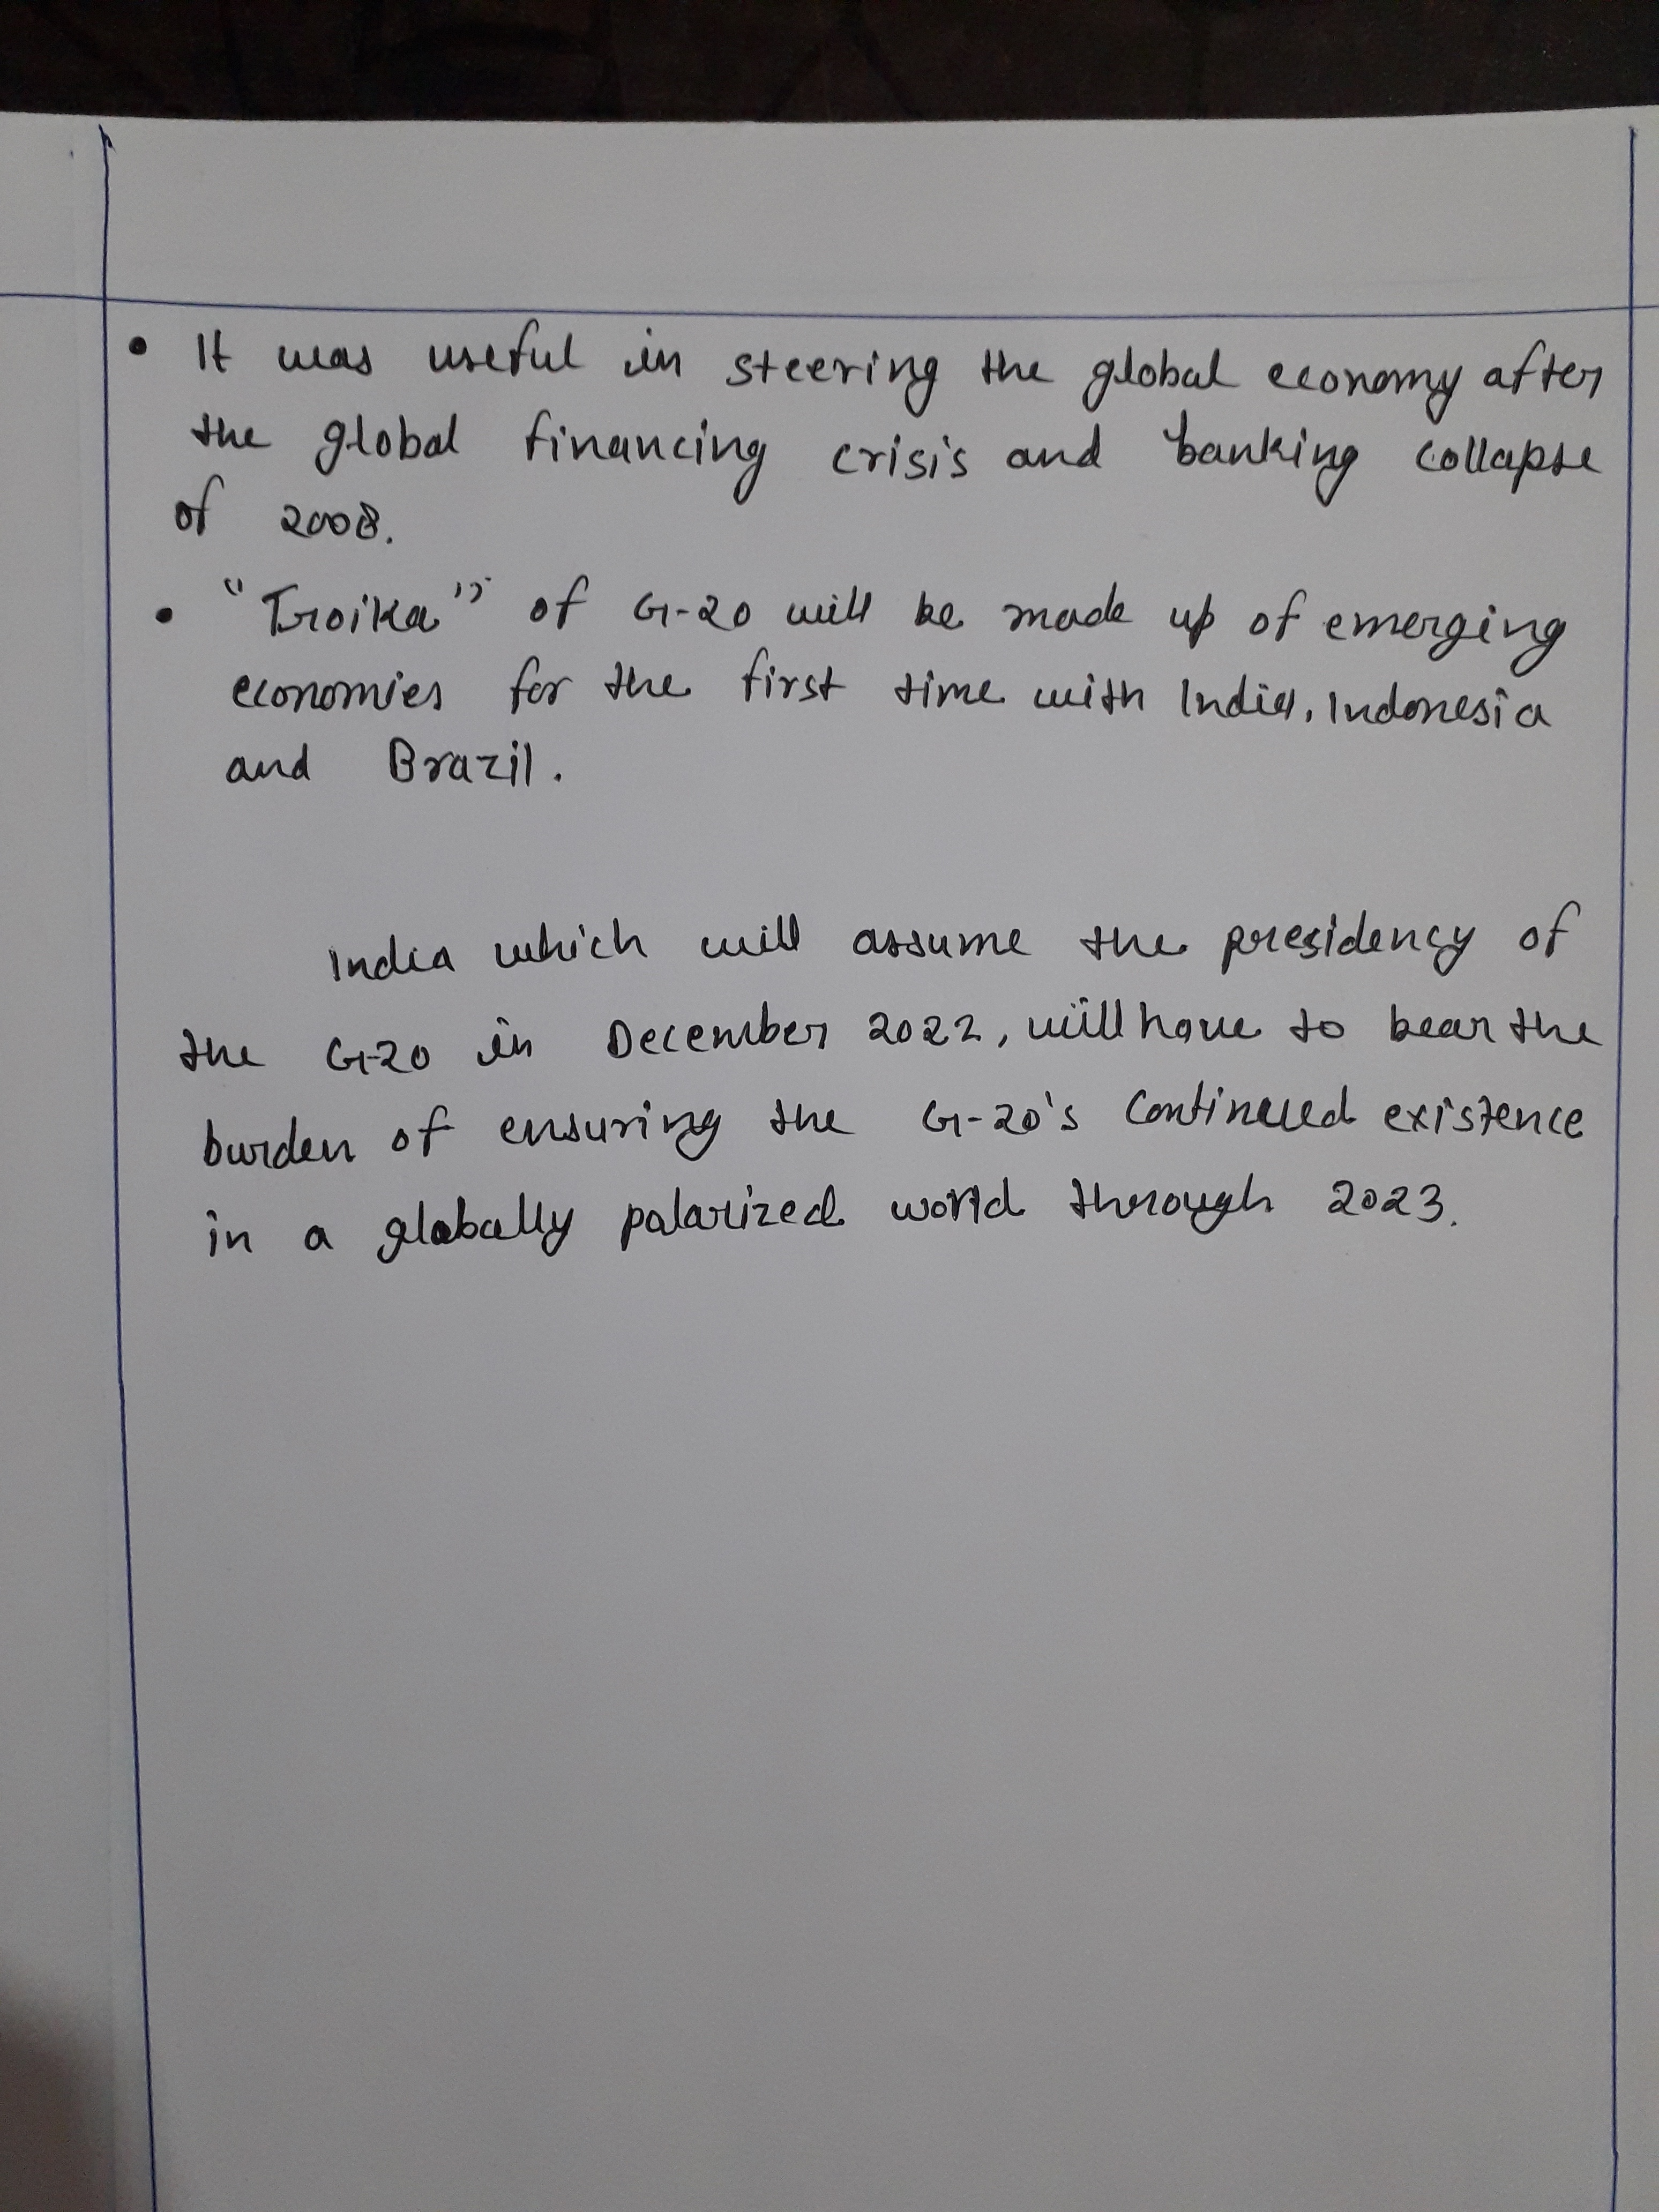 • It was useful in steering the global economy after
the global financing crisis and banking collapse
of 2008.
• "Troika" of G-20 will be made up of emerging
economies for the first time with India, Indonesia
and Brazil.
India which will assume the presidency of
the G-20 in December 2022, will have to bear the
burden of ensuring the G-20's continued existence
in a globally polarized world through 2023.